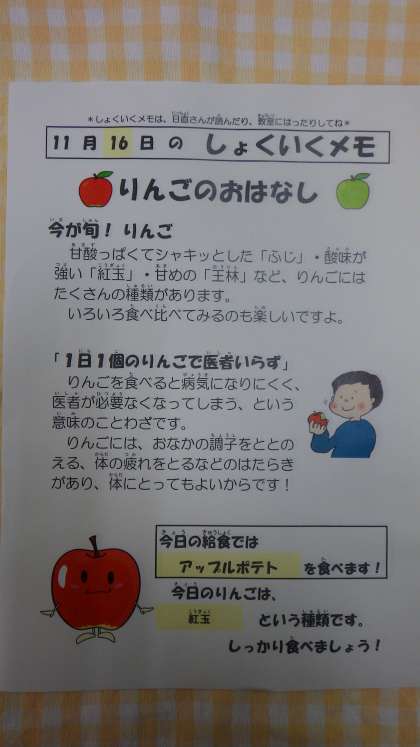 ＊しょくいくメモは、日直さんが読んだり、教室にはったりしてね＊
11月16日の しょくいくメモ
りんごのおはなし
今が旬！りんご
甘酸っぱくてシャキッとした「ふじ」・酸味が
強い「紅玉」・甘めの「王林」など、りんごには
たくさんの種類があります。
いろいろ食べ比べてみるのも楽しいですよ。
「1日1個のりんごで医者いらず」
りんごを食べると病気になりにくく、
医者が必要なくなってしまう、という
意味のことわざです。
りんごには、おなかの調子をととの
える、体の疲れをとるなどのはたらき
があり、体にとってもよいからです！
今日の給食では
アップルポテト を食べます！
今日のりんごは、
紅玉 という種類です。
しっかり食べましょう！